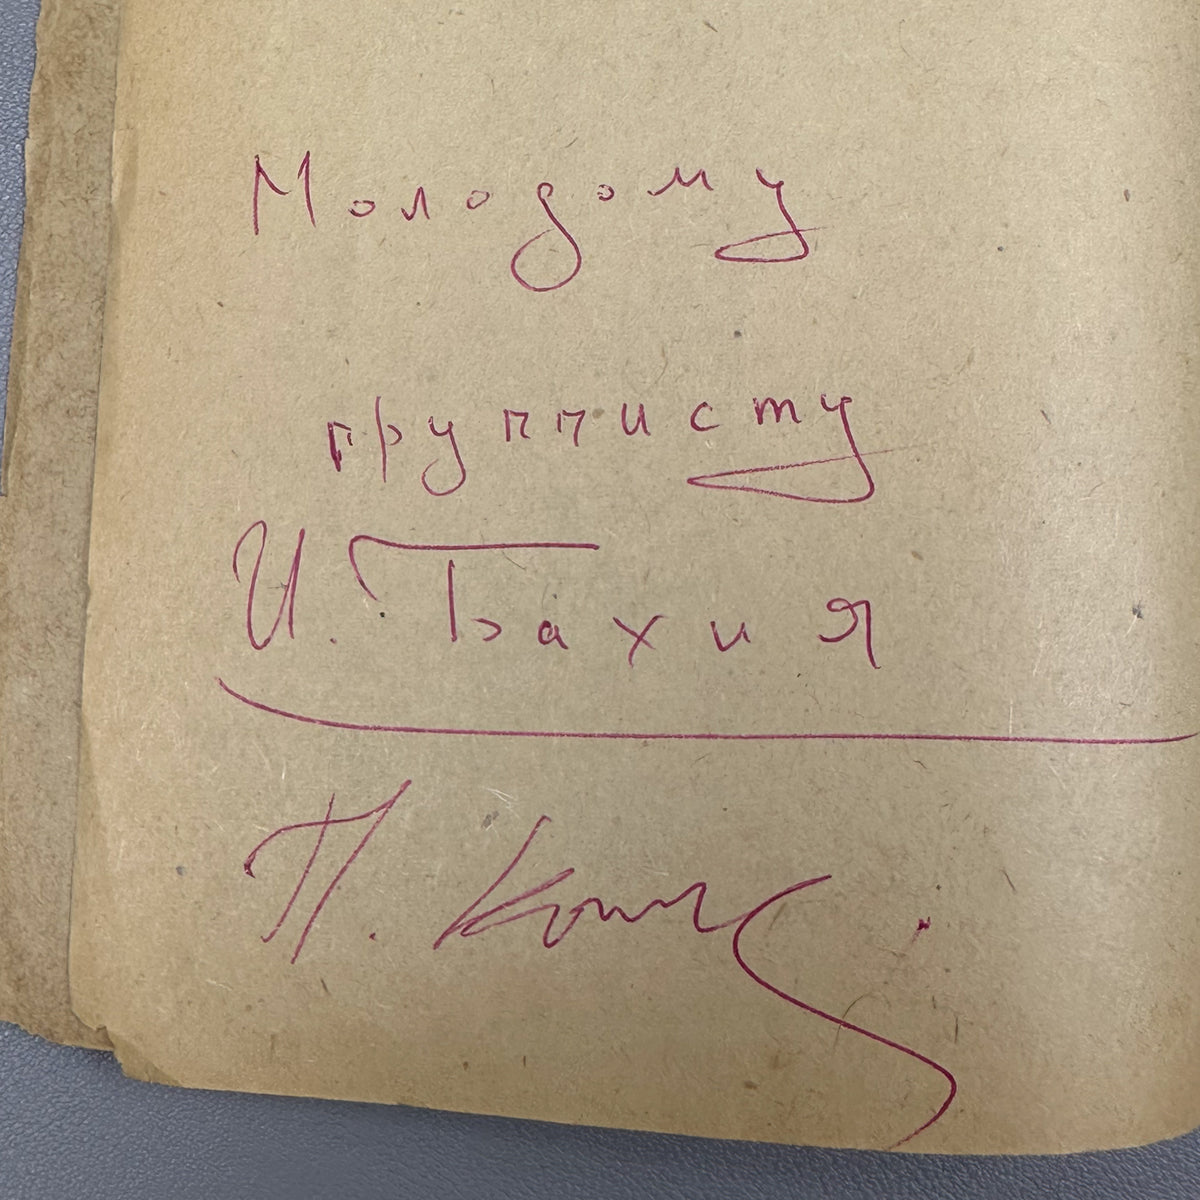 Молодому
групписту
И. Бахия
П.